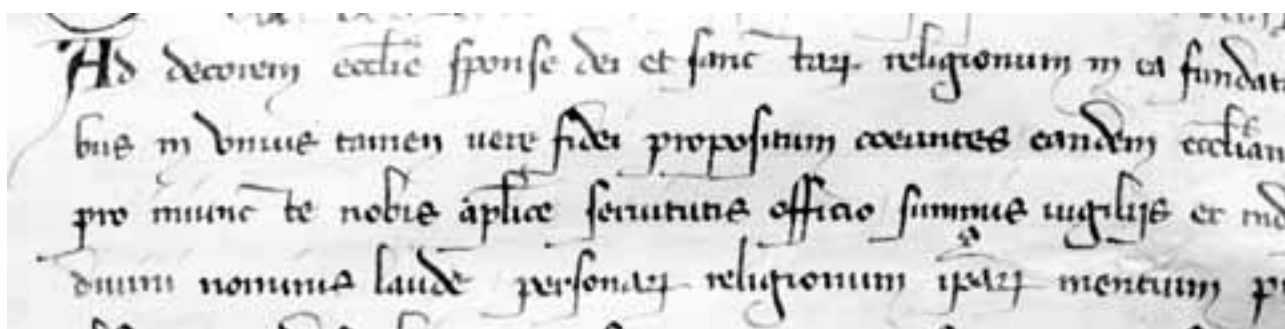 Ad decorem ecclie sponse dei et sanctarum religionum in ea fundat
bus in unius tamen vere fidei propositum coeuntes eandem ecclian
pro iniuncte nobis aplice servitutis officio summis vigiliis et
divini nominis laude personarum religionum ipsarum